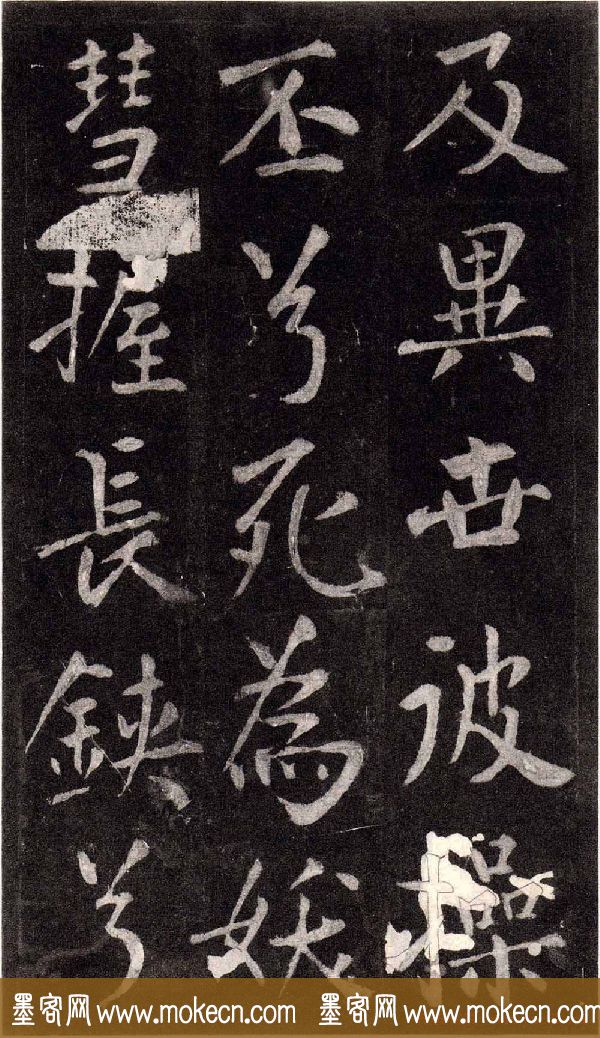 及異世彼操
丕兮死為妖
彗握長鋏兮
墨客网 www.mokecn.com 墨客网 www.mokecn.com